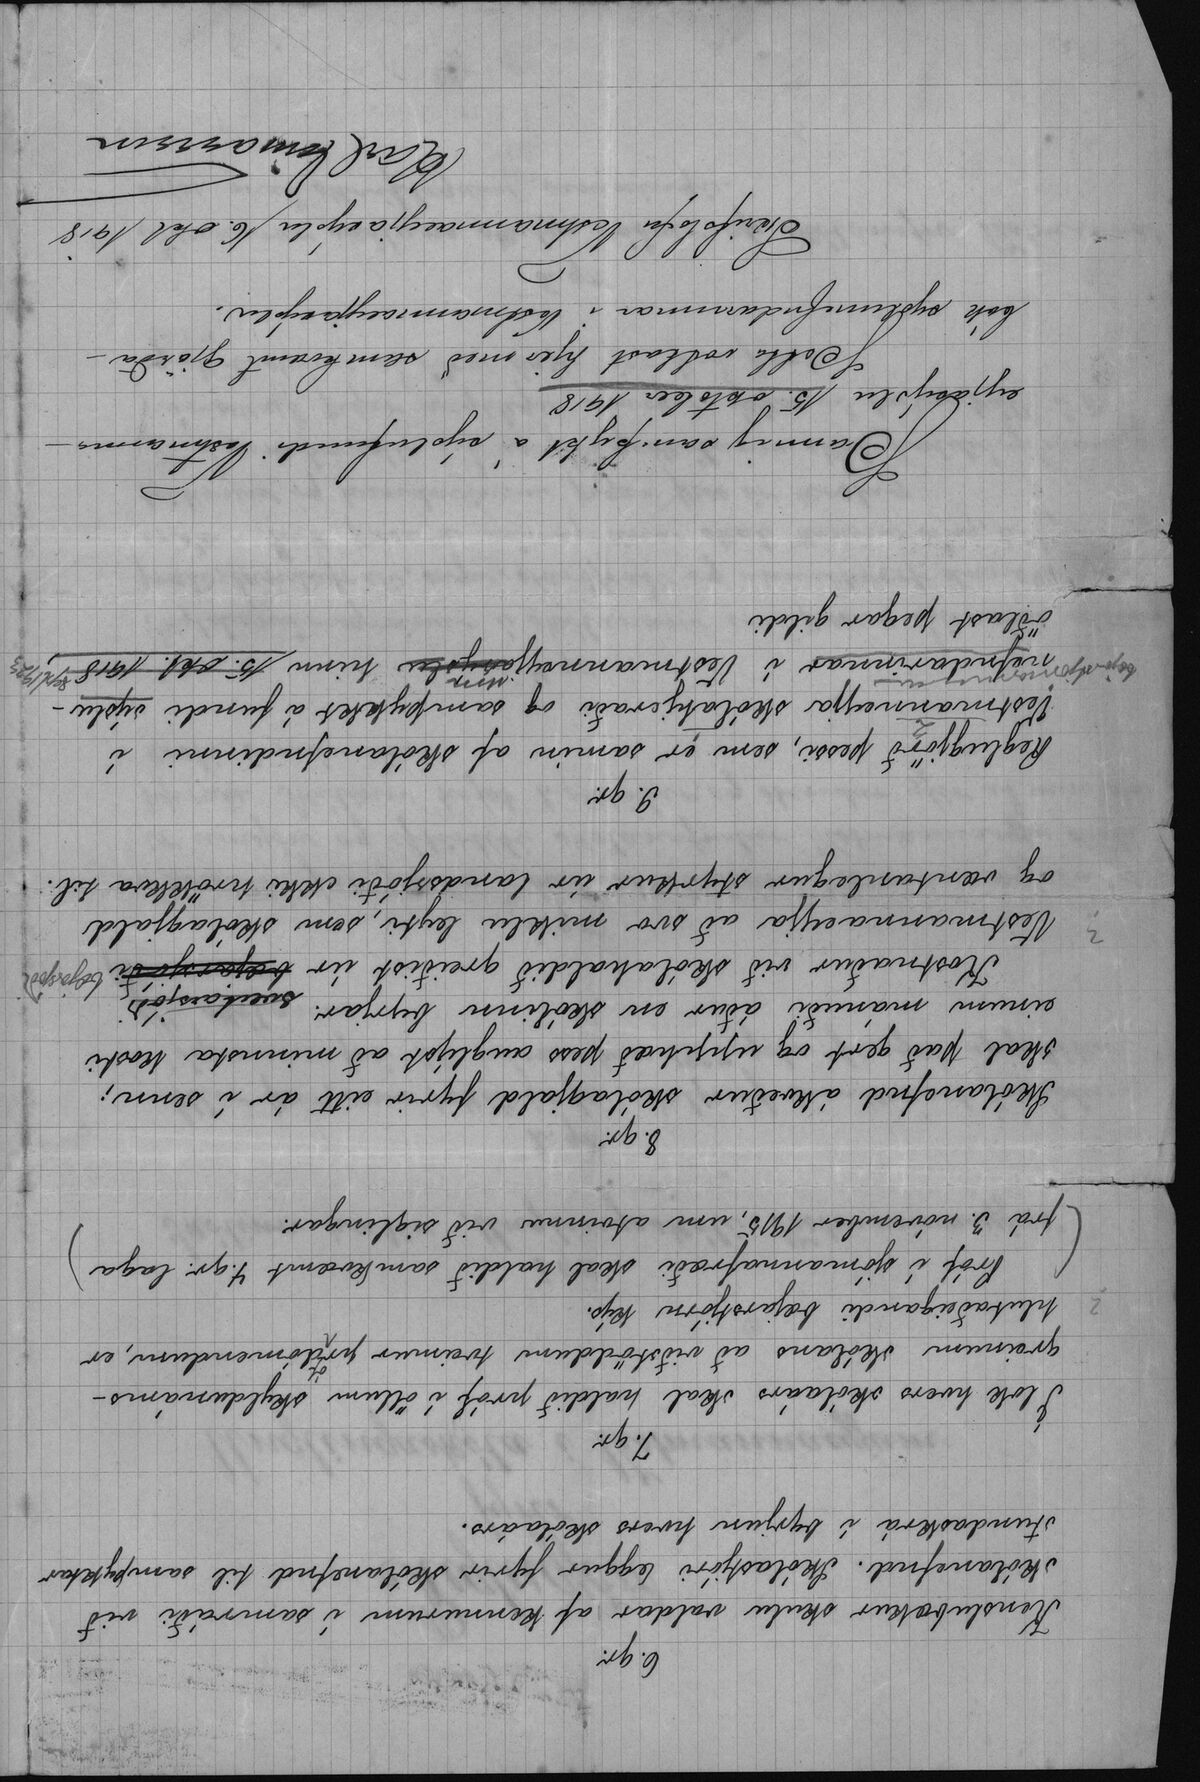 6. gr.
Kenslubækur skulu valdar af kennurum í samráði við
skólanefnd. Skólastjóri leggur fyrir skólanefnd til samþyktar
stundaskrá í byrjun hvers skólaárs.
7. gr.
Í lok hvers skólaárs skal haldið próf í öllum skyldunáms-
greinum skólans að viðstöddum tveimur prófdómendum, er
hlutaðeigandi bæjarstjórn kýs.
(Próf í sjómannafræði skal haldið samkvæmt 4. gr. laga
frá 3. nóvember 1915, um atvinnu við siglingar.)
8. gr.
Skólanefnd ákveður skólagjald fyrir eitt ár í senn;
skal það gert og upphæð þess auglýst að minnsta kosti
einum mánuði áður en skólinn byrjar. sveitarsjóði
Kostnaður við skólahaldið greiðist úr bæjarsjóði bæjarsjóði
Vestmannaeyja að svo miklu leyti, sem skólagjald
og væntanlegur styrkur úr landssjóði ekki hrökkva til.
9. gr.
Reglugjörð þessi, sem er samin af skólanefndinni í
Vestmannaeyja skólahjeraði og samþykt á fundi sýslu-
bæjarstjórnarinnar
nefndarinnar í Vestmannaeyjasýslu hinn 15. okt. 1918,
öðlast þegar gildi
Þannig samþykt á sýslufundi Vestmanna-
eyjasýslu 15. október 1918
Þetta vottast hjer með samkvæmt gjörða-
bók sýslunefndarinnar í Vestmannaeyjasýslu.
Skrifstofu Vestmannaeyjasýslu, 16. okt. 1918
Karl Einarsson